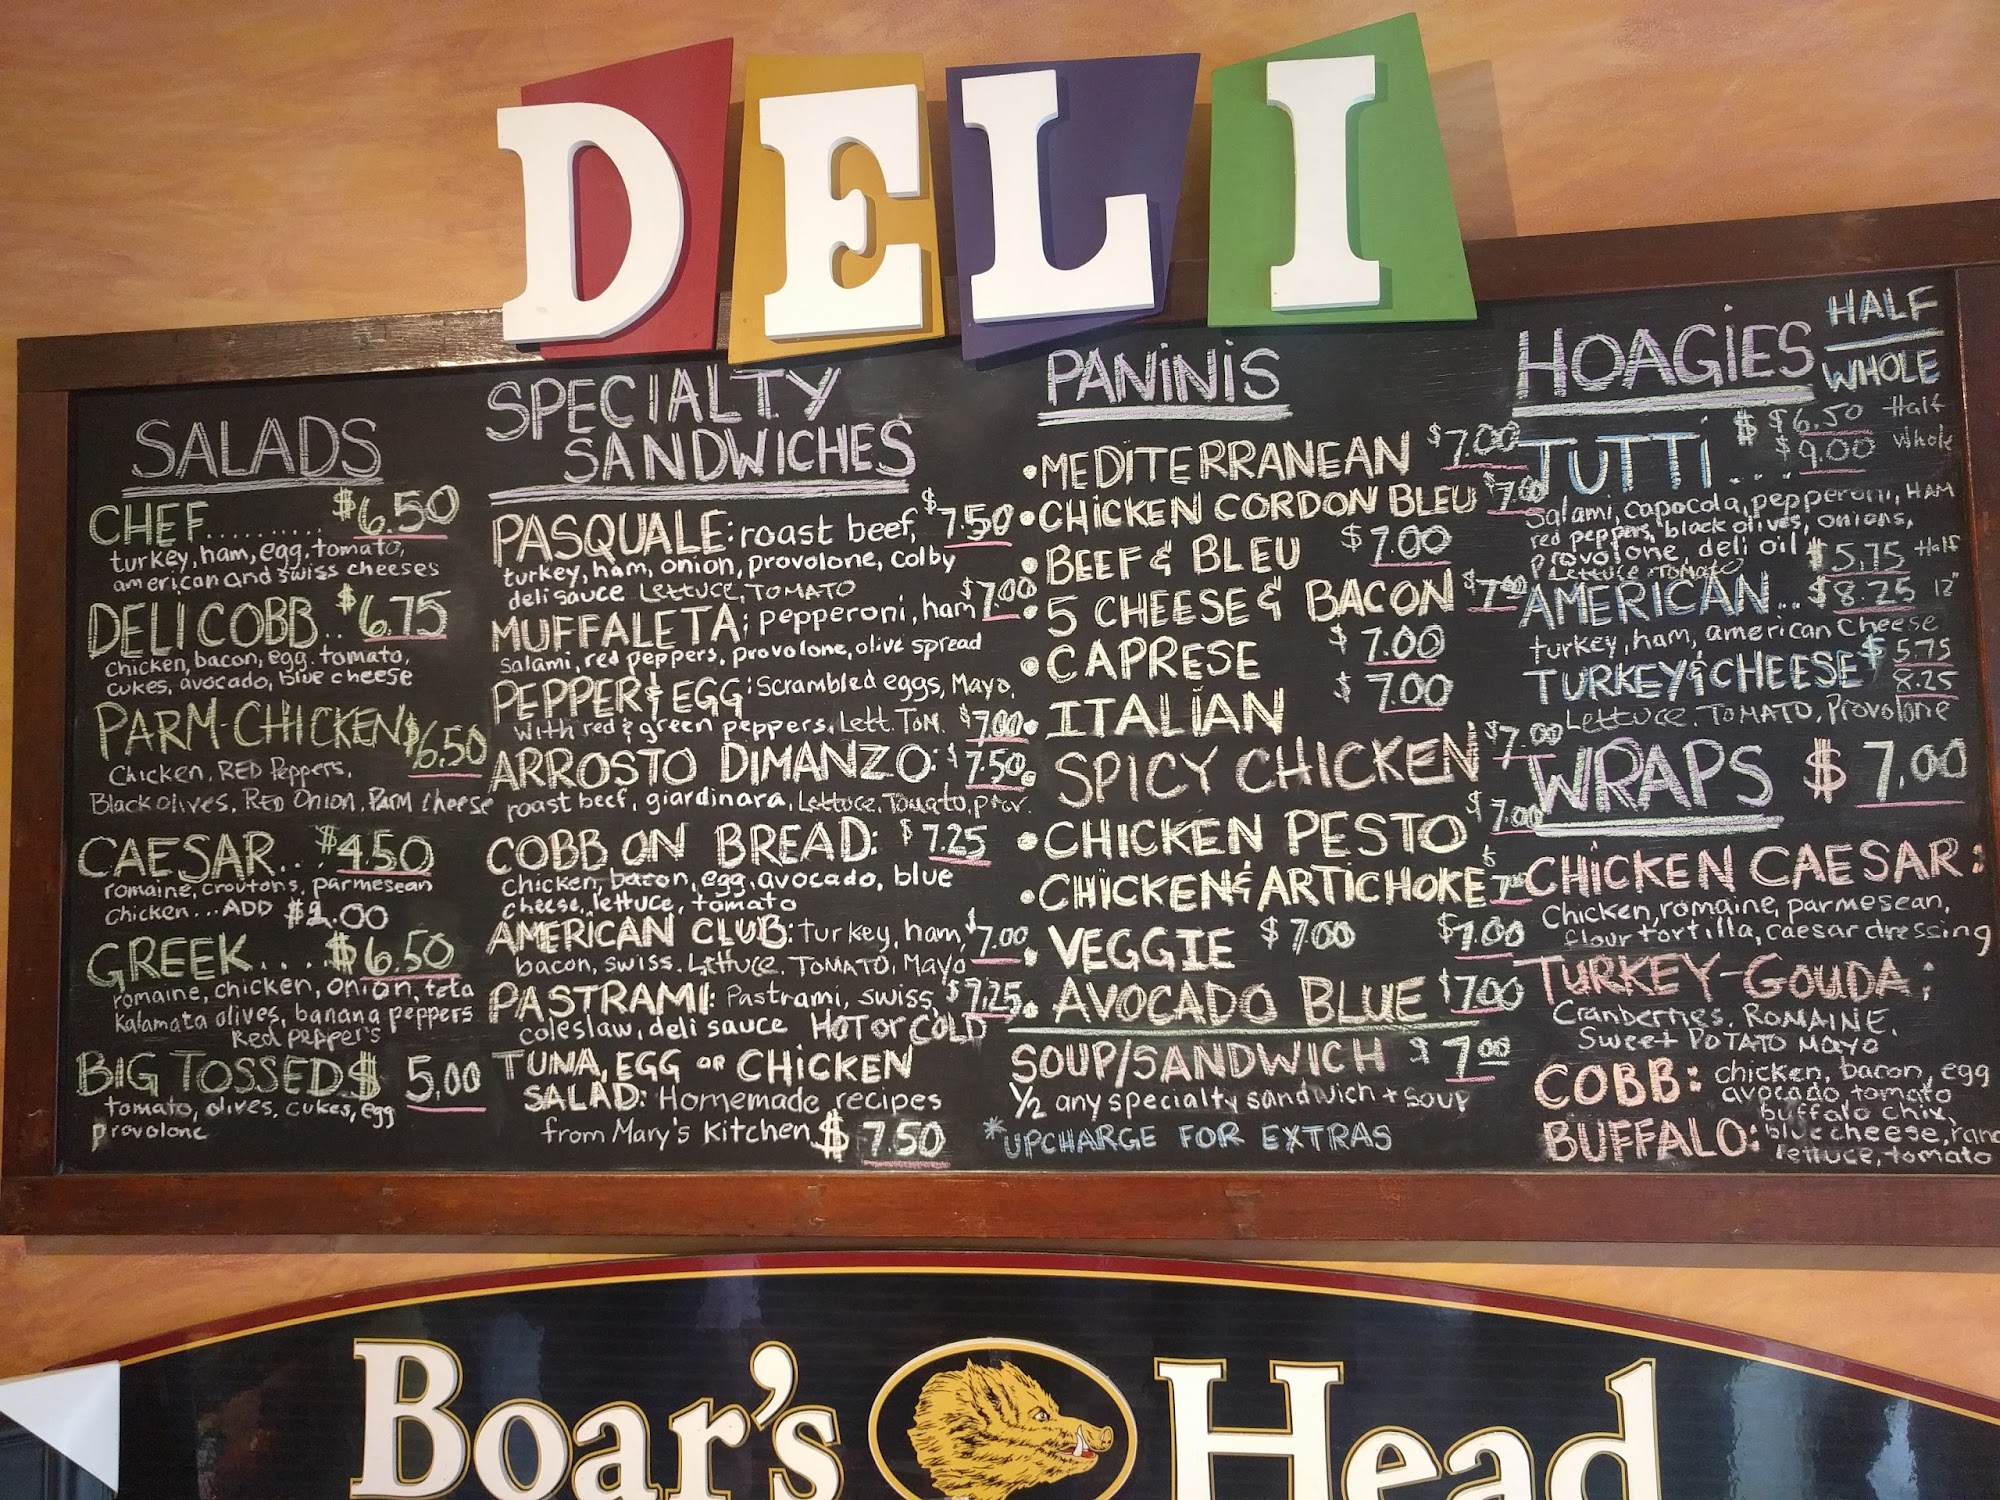 DELI
SALADS
CHEF......... $6.50
turkey, ham, egg, tomato,
american and swiss cheeses
DELI COBB.. $6.75
chicken, bacon, egg, tomato,
cukes, avocado, blue cheese
PARM-CHICKEN $6.50
Chicken, RED Peppers,
Black olives, RED Onion, Parm Cheese
CAESAR... $4.50
romaine, croutons, parmesean
chicken...ADD $2.00
GREEK.... $6.50
romaine, chicken, onion, feta
kalamata olives, banana peppers
Red pepper's
BIG TOSSED $5.00
tomato, olives, cukes, egg
provolone
SPECIALTY
SANDWICHES
PASQUALE: roast beef, $7.50
turkey, ham, onion, provolone, colby
deli sauce Lettuce, TOMATO
MUFFALETA; pepperoni, ham $7.00
salami, red peppers, provolone, olive spread
PEPPER & EGG: Scrambled eggs, Mayo,
with red & green peppers, Lett. Tom. $7.00
ARROSTO DIMANZO: $7.50
roast beef, giardinara, Lettuce, Tomato, prov.
COBB ON BREAD: $7.25
chicken, bacon, egg, avocado, blue
cheese, lettuce, tomato
AMERICAN CLUB: turkey, ham, $7.00
bacon, swiss, Lettuce, TOMATO, Mayo
PASTRAMI: Pastrami, swiss, $7.25
coleslaw, deli sauce HOT or COLD
TUNA, EGG OR CHICKEN
SALAD: Homemade recipes
from Mary's Kitchen $7.50
PANINIS
• MEDITERRANEAN $7.00
• CHICKEN CORDON BLEU $7.00
• BEEF & BLEU $7.00
• 5 CHEESE & BACON $7.00
• CAPRESE $7.00
• ITALIAN $7.00
• SPICY CHICKEN $7.00
• CHICKEN PESTO $7.00
• CHICKEN & ARTICHOKE $7.00
• VEGGIE $7.00 $7.00
• AVOCADO BLUE $7.00
SOUP/SANDWICH $7.00
1/2 any specialty sandwich + soup
*UPCHARGE FOR EXTRAS
HOAGIES HALF
WHOLE
TUTTI... $ $6.50 Half
$9.00 Whole
Salami, capocola, pepperoni, HAM
red peppers, black olives, onions,
provolone, deli oil
Lettuce, Tomato $5.75 Half
AMERICAN.. $8.25 12"
turkey, ham, american cheese
TURKEY & CHEESE $5.75
8.25
Lettuce, TOMATO, Provolone
WRAPS $7.00
CHICKEN CAESAR:
Chicken, romaine, parmesean,
flour tortilla, caesar dressing
TURKEY-GOUDA;
Cranberries, ROMAINE,
Sweet POTATO Mayo
COBB: chicken, bacon, egg
avocado, tomato
BUFFALO: buffalo chix,
blue cheese,
lettuce, tomato
Boar's Head